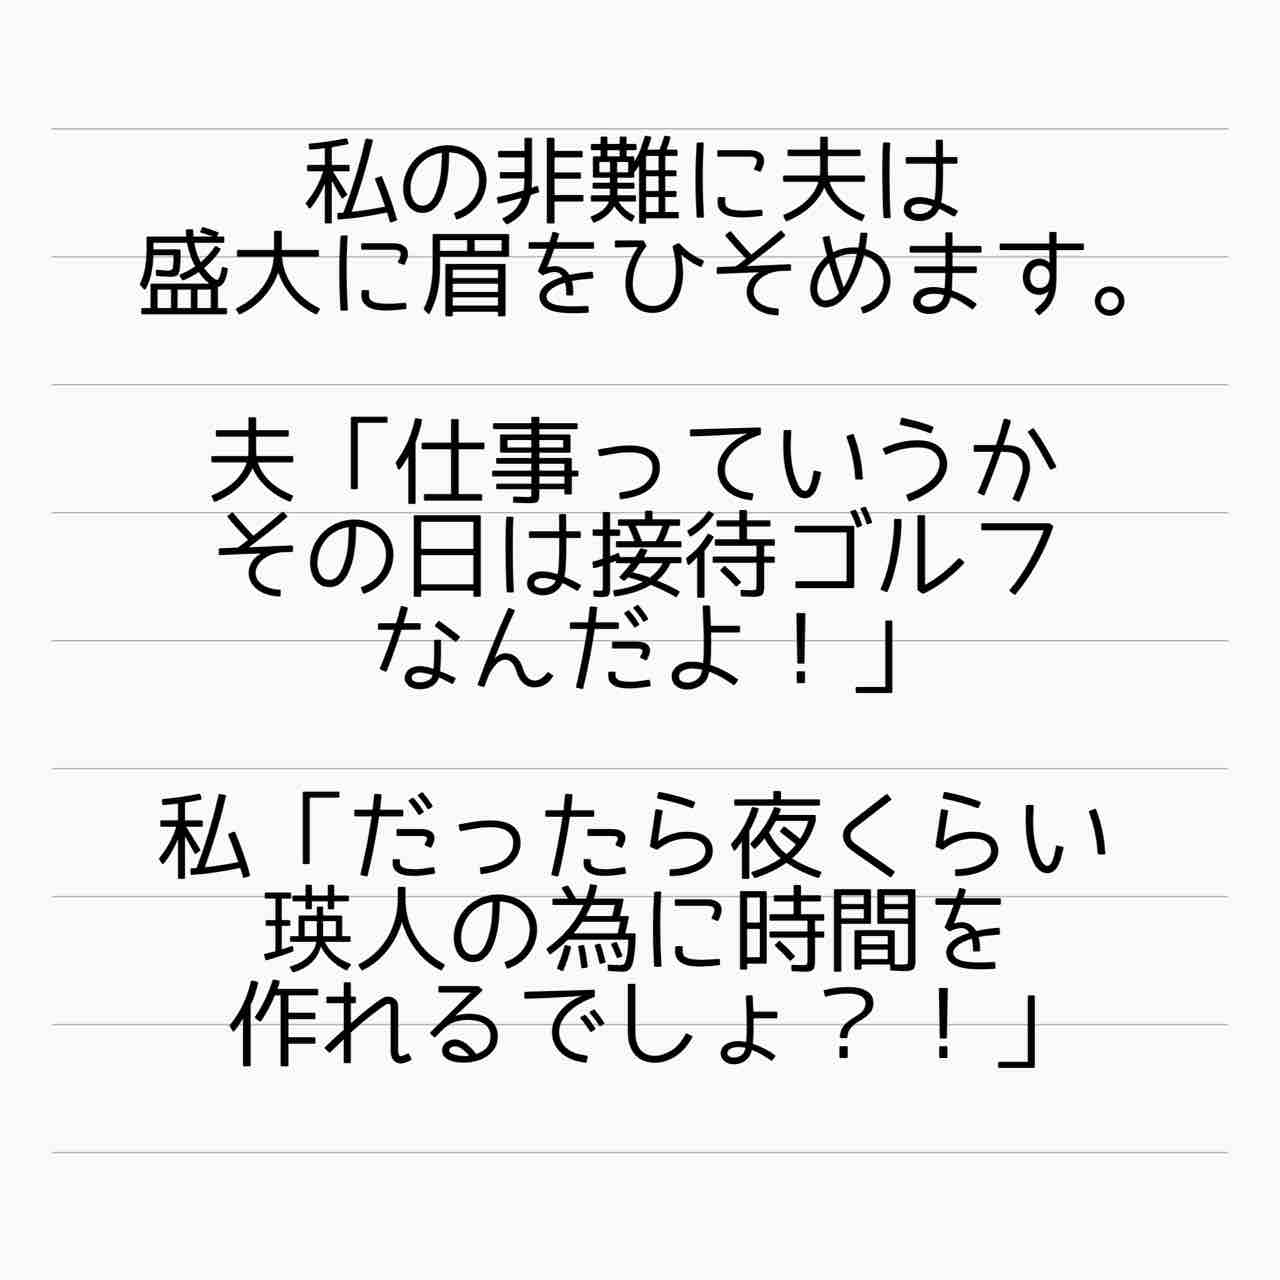 私の非難に夫は
盛大に眉をひそめます。
夫「仕事っていうか
その日は接待ゴルフ
なんだよ！」
私「だったら夜くらい
瑛人の為に時間を
作れるでしょ？！」